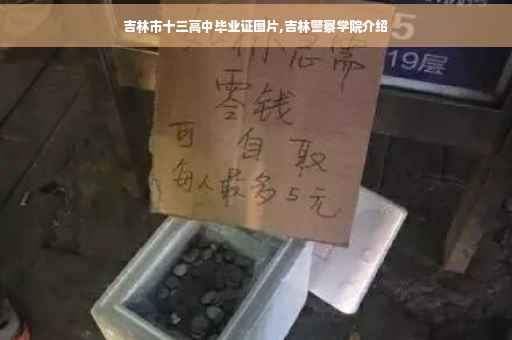 吉林市十三高中毕业证图片,吉林警察学院介绍
你急需
零钱
可自取
每人最多5元
5
19层